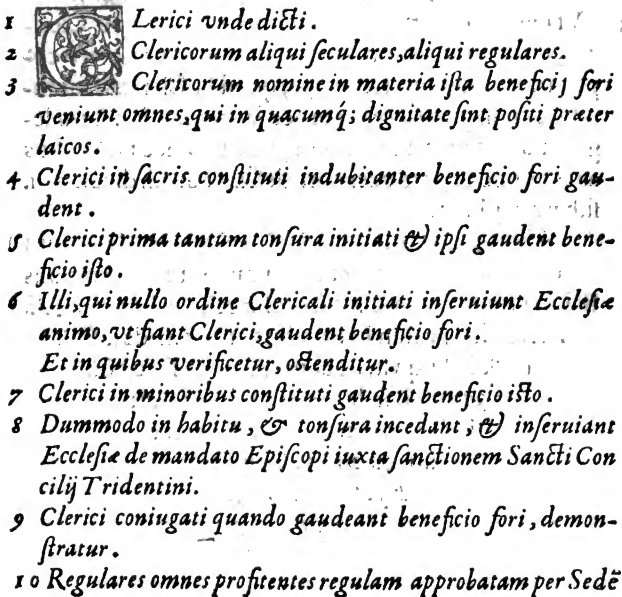 1 CLerici vnde dicti.
2 Clericorum aliqui seculares, aliqui regulares.
3 Clericorum nomine in materia ista beneficij fori
veniunt omnes, qui in quacumq́; dignitate sint positi præter
laicos.
4 Clerici in sacris constituti indubitanter beneficio fori gau-
dent.
5 Clerici prima tantum tonsura initiati & ipsi gaudent bene-
ficio isto.
6 Illi, qui nullo ordine Clericali initiati inseruiunt Ecclesiæ
animo, vt fiant Clerici, gaudent beneficio fori.
Et in quibus verificetur, ostenditur.
7 Clerici in minoribus constituti gaudent beneficio isto.
8 Dummodo in habitu, & tonsura incedant, & inseruiant
Ecclesiæ de mandato Episcopi iuxta sanctionem Sancti Con
cilij Tridentini.
9 Clerici coniugati quando gaudeant beneficio fori, demon-
stratur.
10 Regulares omnes profitentes regulam approbatam per Sedē